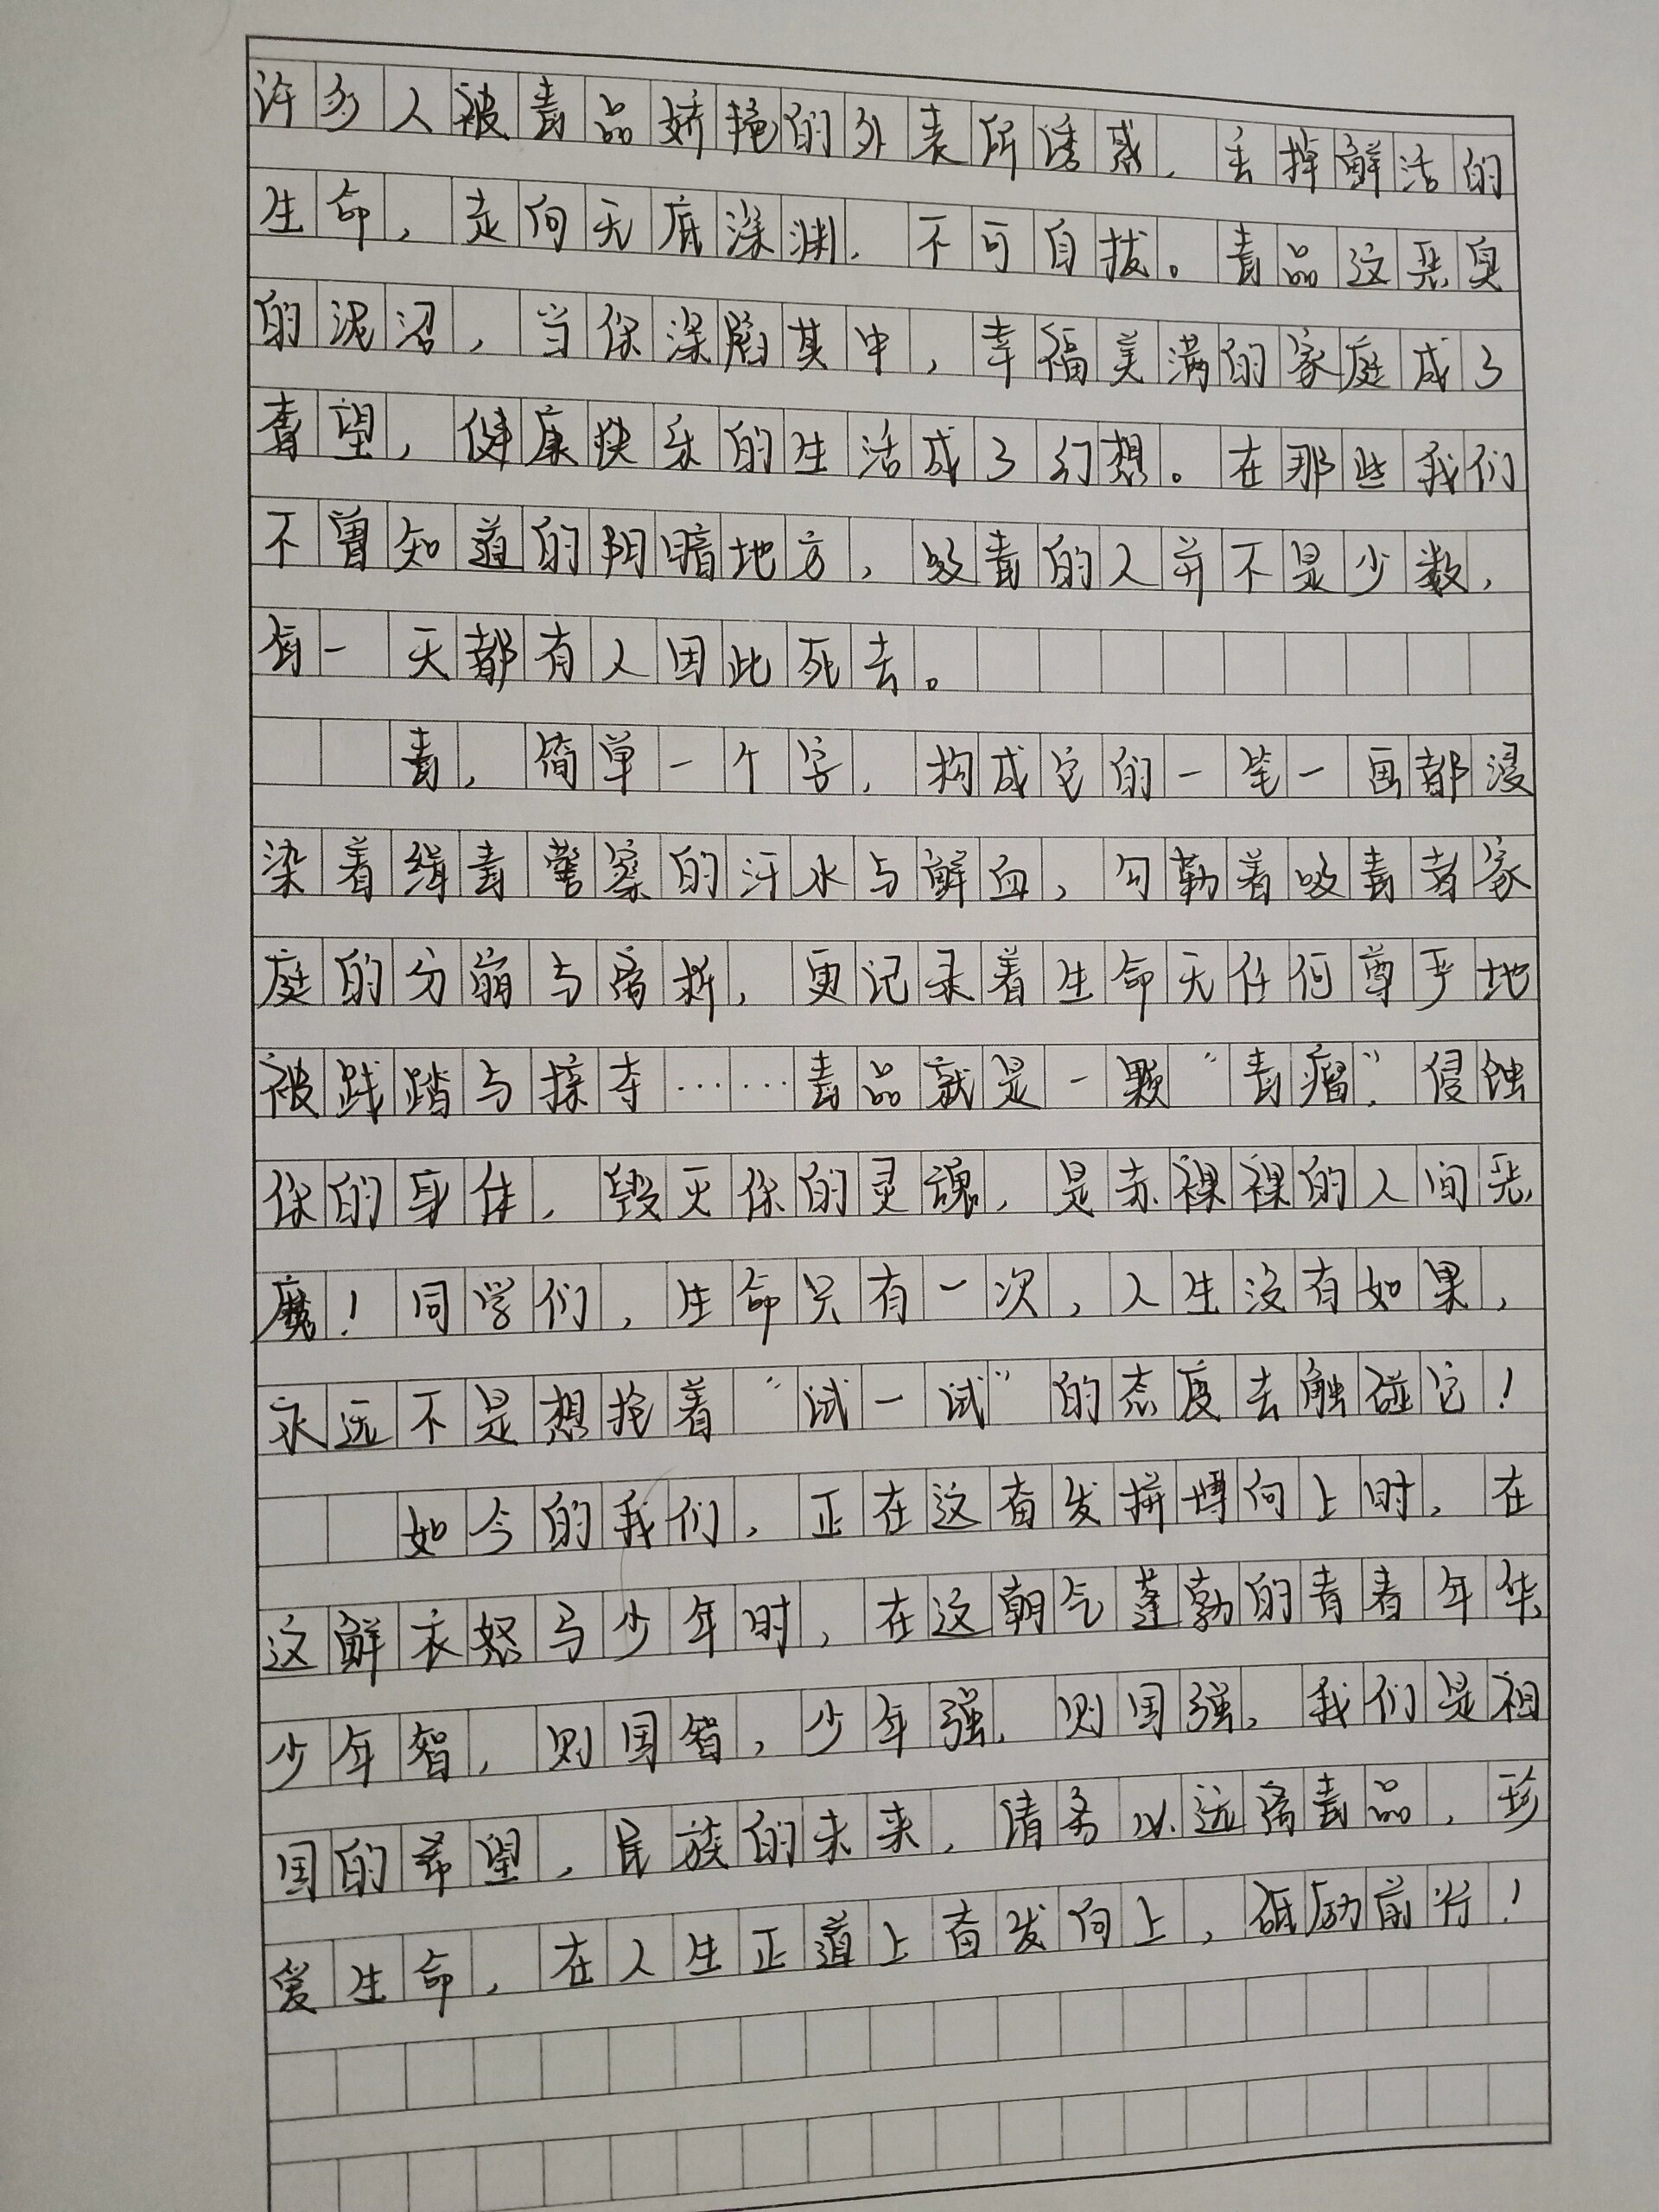 许多人被毒品娇艳的外表所诱惑，丢掉鲜活的
生命，走向无底深渊，不可自拔。毒品这恶臭
的泥沼，当你深陷其中，幸福美满的家庭成了
奢望，健康快乐的生活成了幻想。在那些我们
不曾知道的阴暗地方，吸毒的人并不是少数，
每一天都有人因此死去。
毒，简单一个字，构成它的一笔一画都浸
染着缉毒警察的汗水与鲜血，勾勒着吸毒者家
庭的分崩与离析，更记录着生命无任何尊严地
被践踏与掠夺……毒品就是一颗“毒瘤”，侵蚀
你的身体，毁灭你的灵魂，是赤裸裸的人间恶
魔！同学们，生命只有一次，人生没有如果，
永远不是想抱着“试一试”的态度去触碰它！
如今的我们，正在这奋发拼搏向上时，在
这鲜衣怒马少年时，在这朝气蓬勃的青春年华
少年智，则国智，少年强，则国强，我们是祖
国的希望，民族的未来，请务必远离毒品，珍
爱生命，在人生正道上奋发向上，砥励前行！